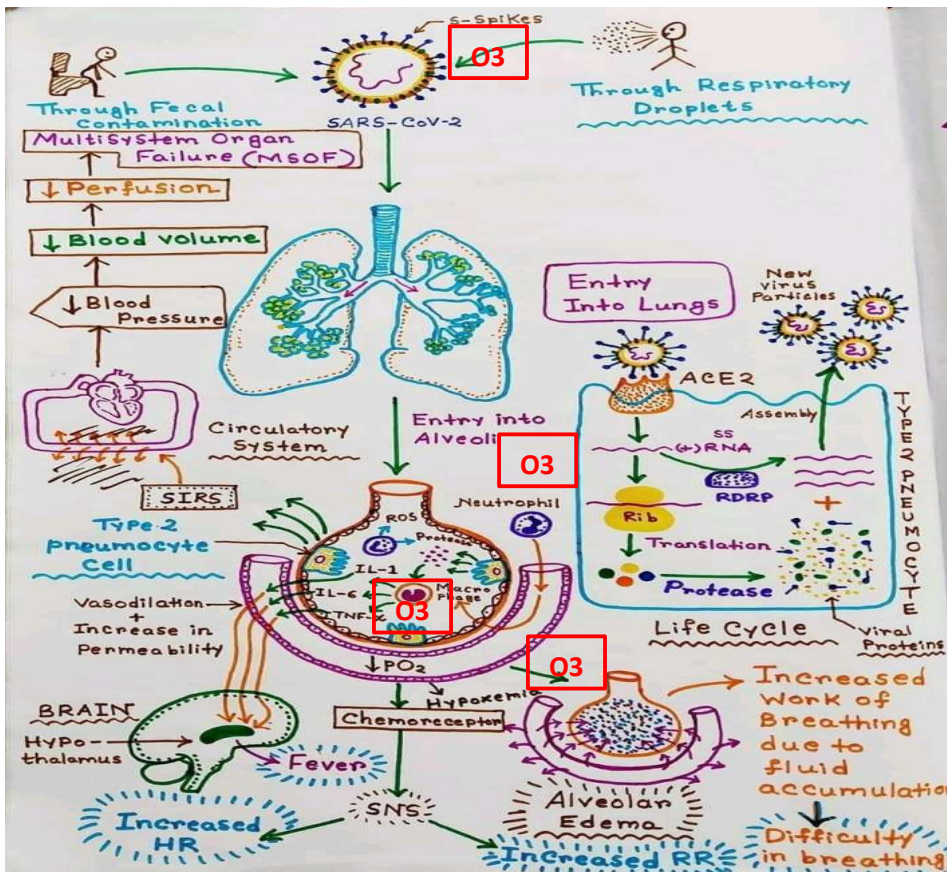 S-Spikes
O3
Through Fecal
Contamination
SARS-CoV-2
Through Respiratory
Droplets
Multisystem Organ
Failure (MSOF)
↓ Perfusion
↓ Blood volume
↓ Blood
Pressure
Entry
Into Lungs
New
Virus
Particles
ACE2
Assembly
SS
(+)RNA
RDRP
+
Rib
Translation
Protease
Viral
Proteins
Life Cycle
TYPE 2 PNEUMOCYTE
Circulatory
System
SIRS
Entry into
Alveoli
O3
Neutrophil
Type-2
Pneumocyte
Cell
ROS
Protease
IL-1
IL-6
TNF-α
Macro
phage
O3
Vasodilation
+
Increase in
Permeability
↓PO2
Hypoxemia
O3
Chemoreceptor
BRAIN
Hypo-
thalamus
Fever
SNS
Increased
HR
Increased RR
Alveolar
Edema
Increased
work of
Breathing
due to
fluid
accumulation
Difficulty
in breathing